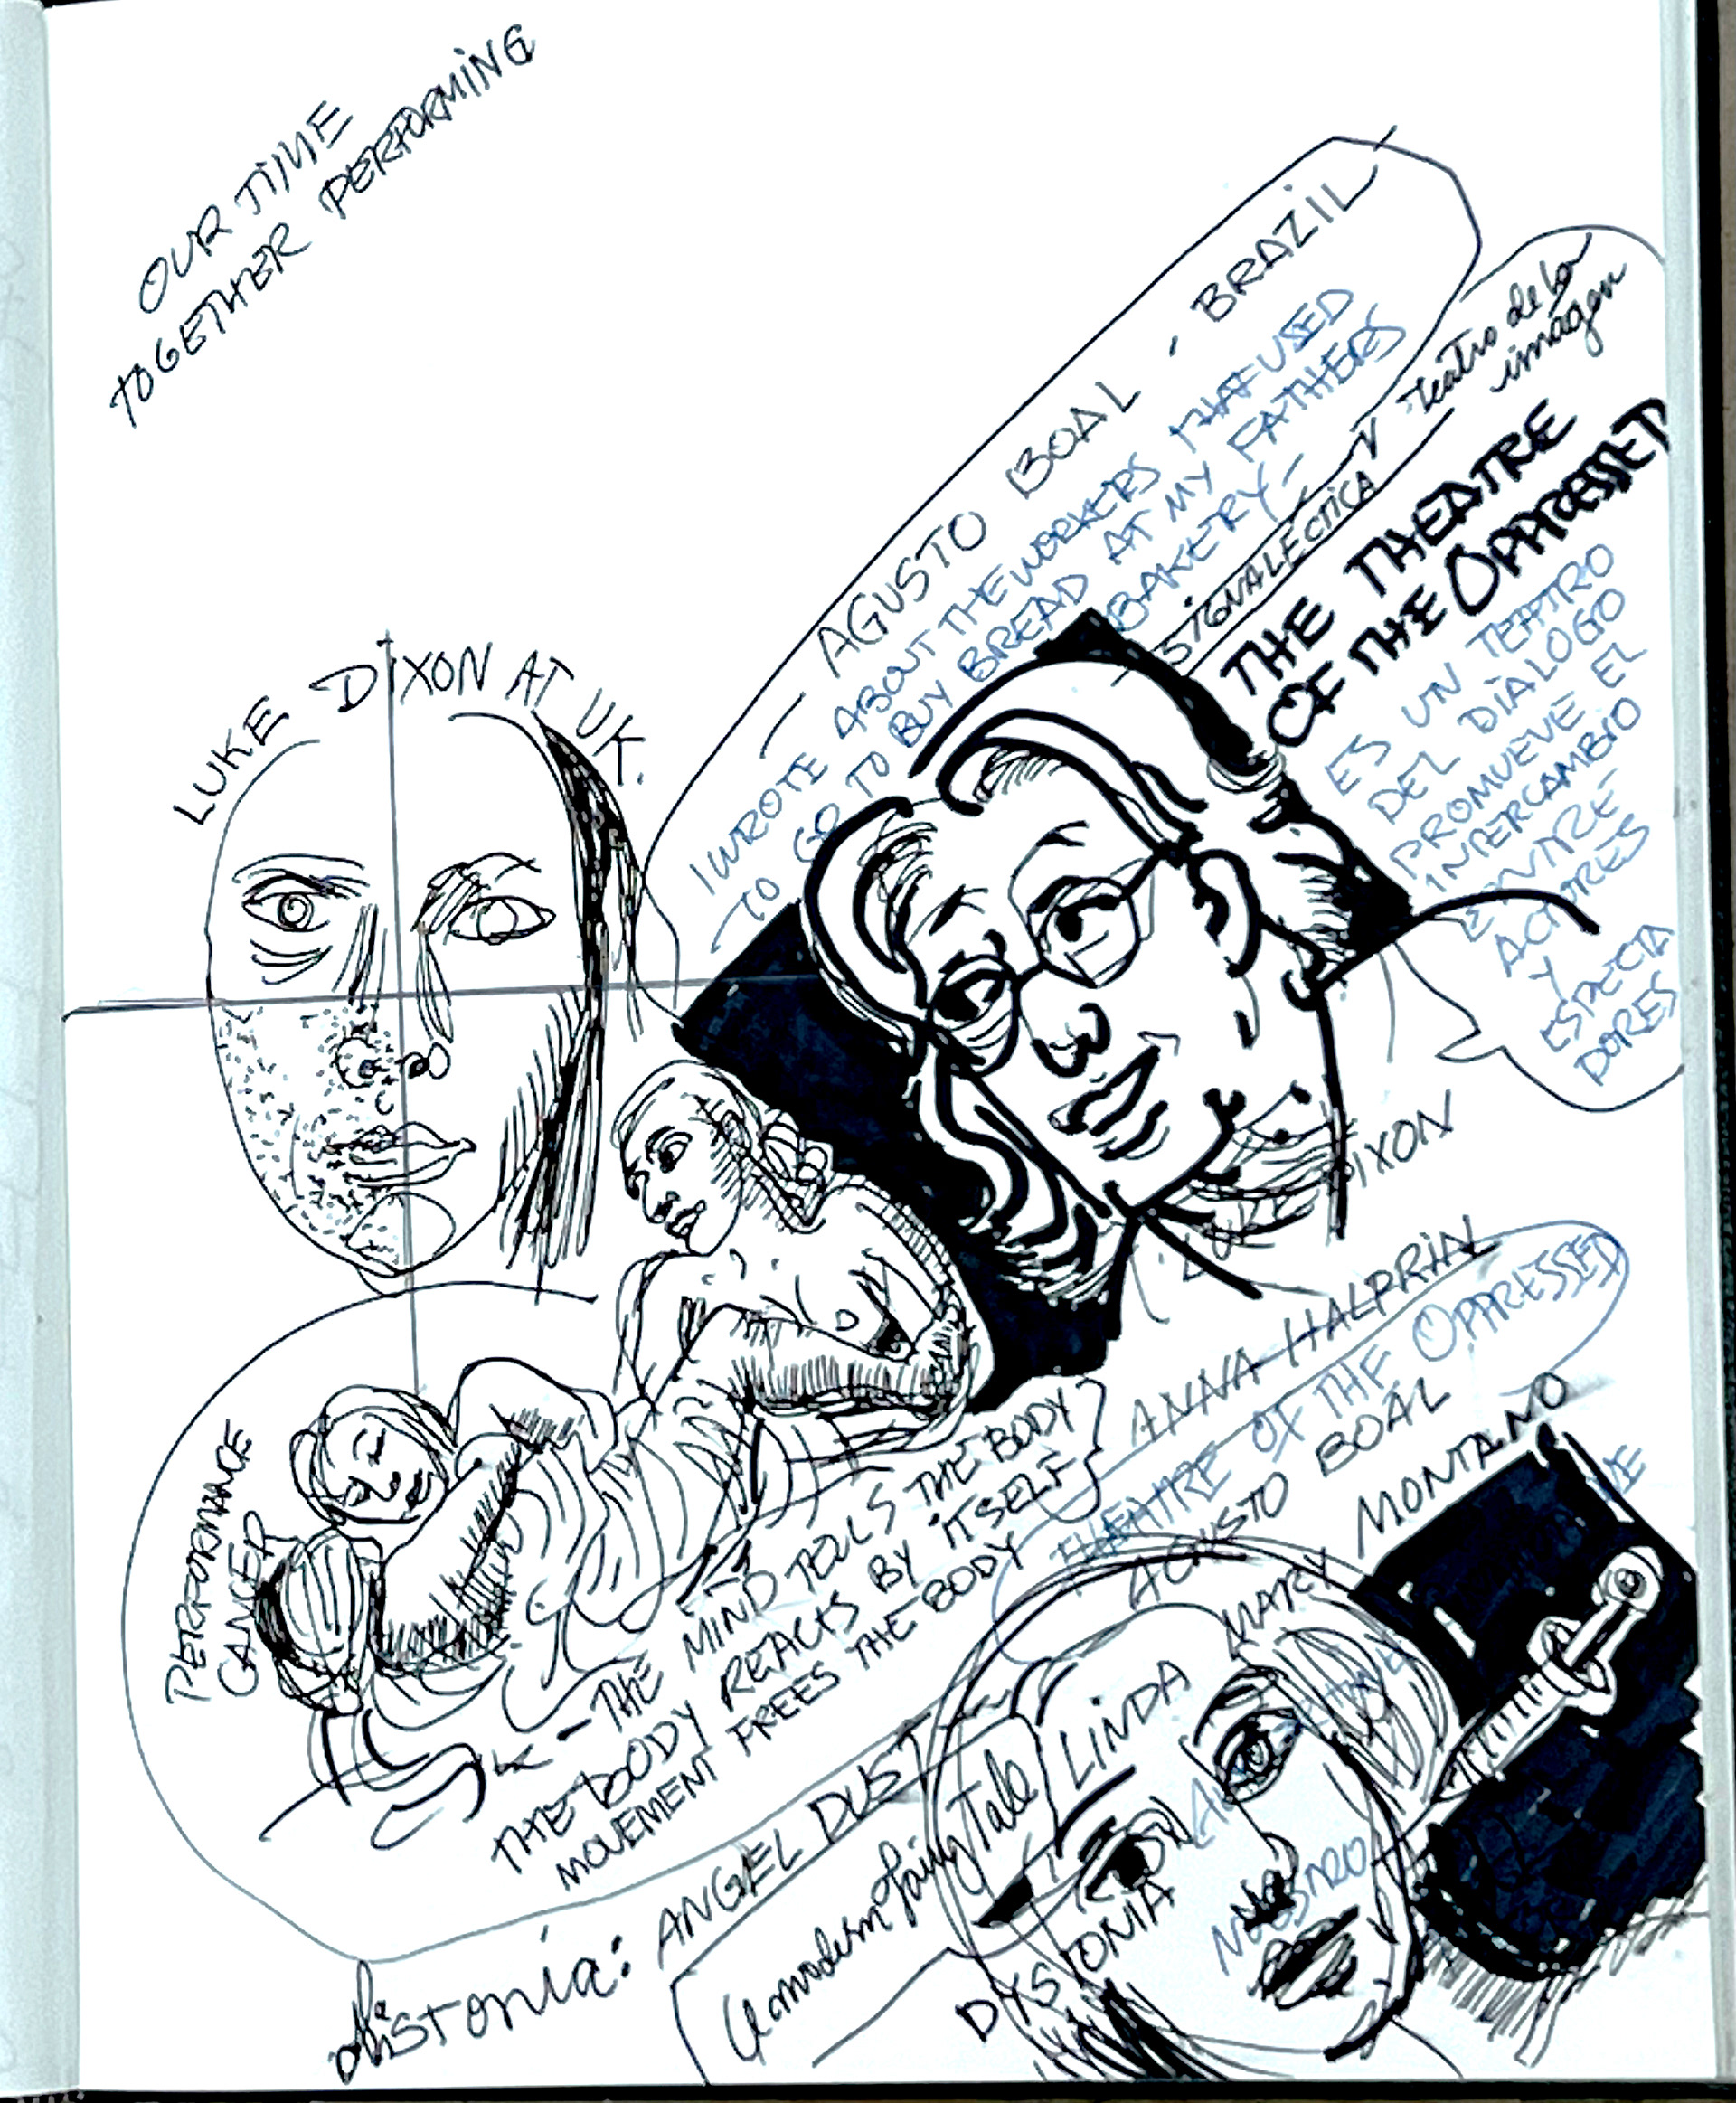 OUR TIME
TOGETHER PERFORMING
LUKE DIXON AT UK.
- AGUSTO BOAL - BRAZIL
I WROTE ABOUT THE WORKERS THAT USED
TO GO TO BUY BREAD AT MY FATHERS
BAKERY -
SIGNALECTICA
Teatro de la
imagen
THE THEATRE
OF THE OPPRESSED
ES UN TEATRO
DEL DIALOGO
PROMUEVE EL
INTERCAMBIO
ENTRE
ACTORES
Y
ESPECTA
DORES
LUKE DIXON
ANNA HALPRIN
THEATRE OF THE OPPRESSED
AGUSTO BOAL
PERFORMANCE
CANCER
- THE MIND TELLS THE BODY
THE BODY REACTS BY ITSELF
MOVEMENT FREES THE BODY
LINDA MARY MONTANO
distonia: ANGEL DUST
a modern fairy Tale
DYSTONIA
NUESTRO